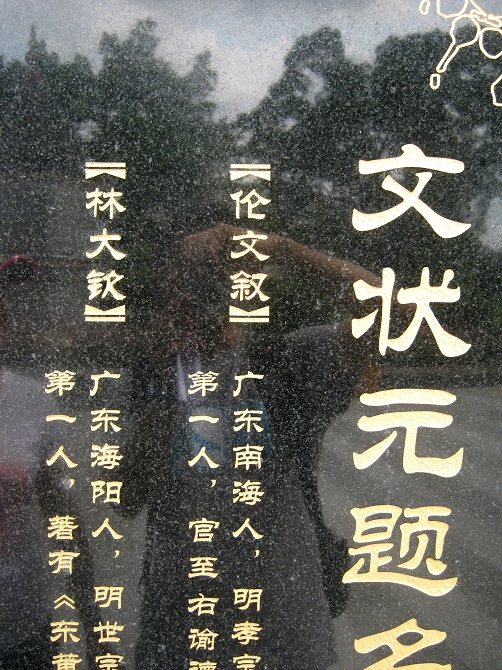 文状元题名
【伦文叙】
广东南海人，明孝宗
第一人，官至右谕德
【林大钦】
广东海阳人，明世宗
第一人，著有《东莆